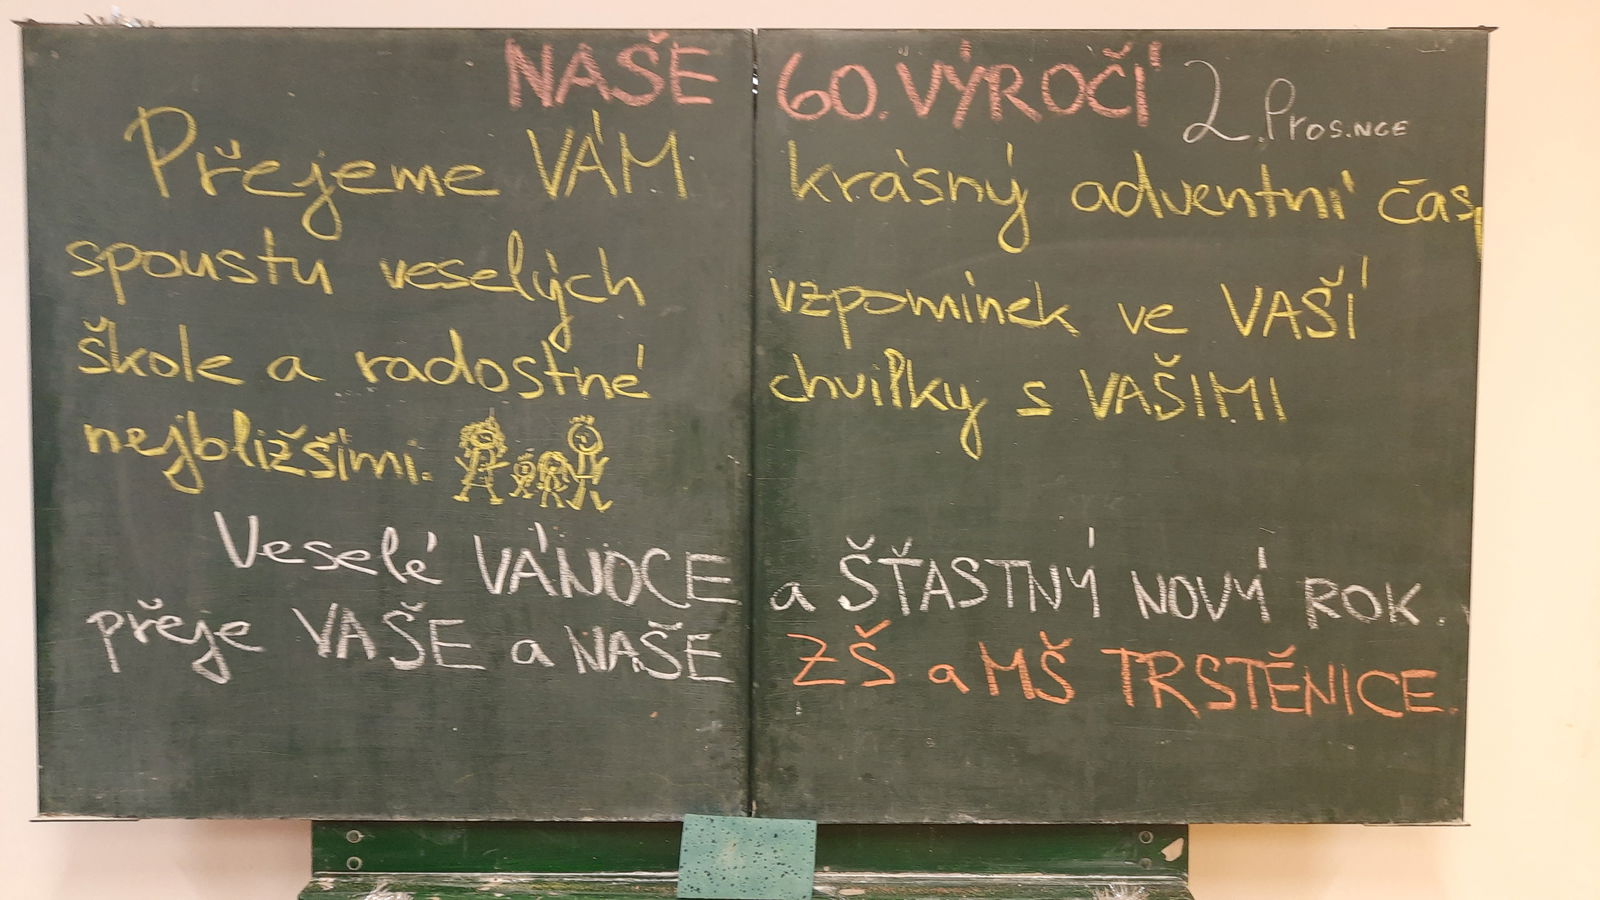 NAŠE 60. VÝROČÍ 2. Pros.NCE
Přejeme VÁM krásný adventní čas,
spoustu veselých vzpomínek ve VAŠÍ
škole a radostné chvilky s VAŠIMI
nejbližšími.
Veselé VÁNOCE a ŠŤASTNÝ NOVÝ ROK.
přeje VAŠE a NAŠE ZŠ a MŠ TRSTĚNICE.